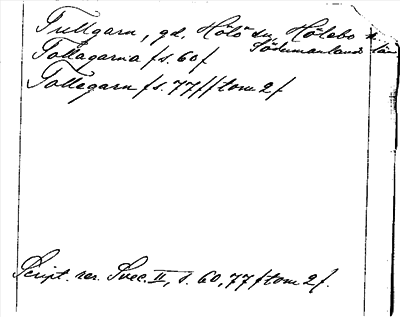 Tullgarn, gd, Hölö sn, Hölebo h.
Södermanlands län
Tollagarna /s. 60/
Tollegarn /s. 77/ /tom 2/
Script. rer. Svec. II, s. 60, 77 /tom 2/.